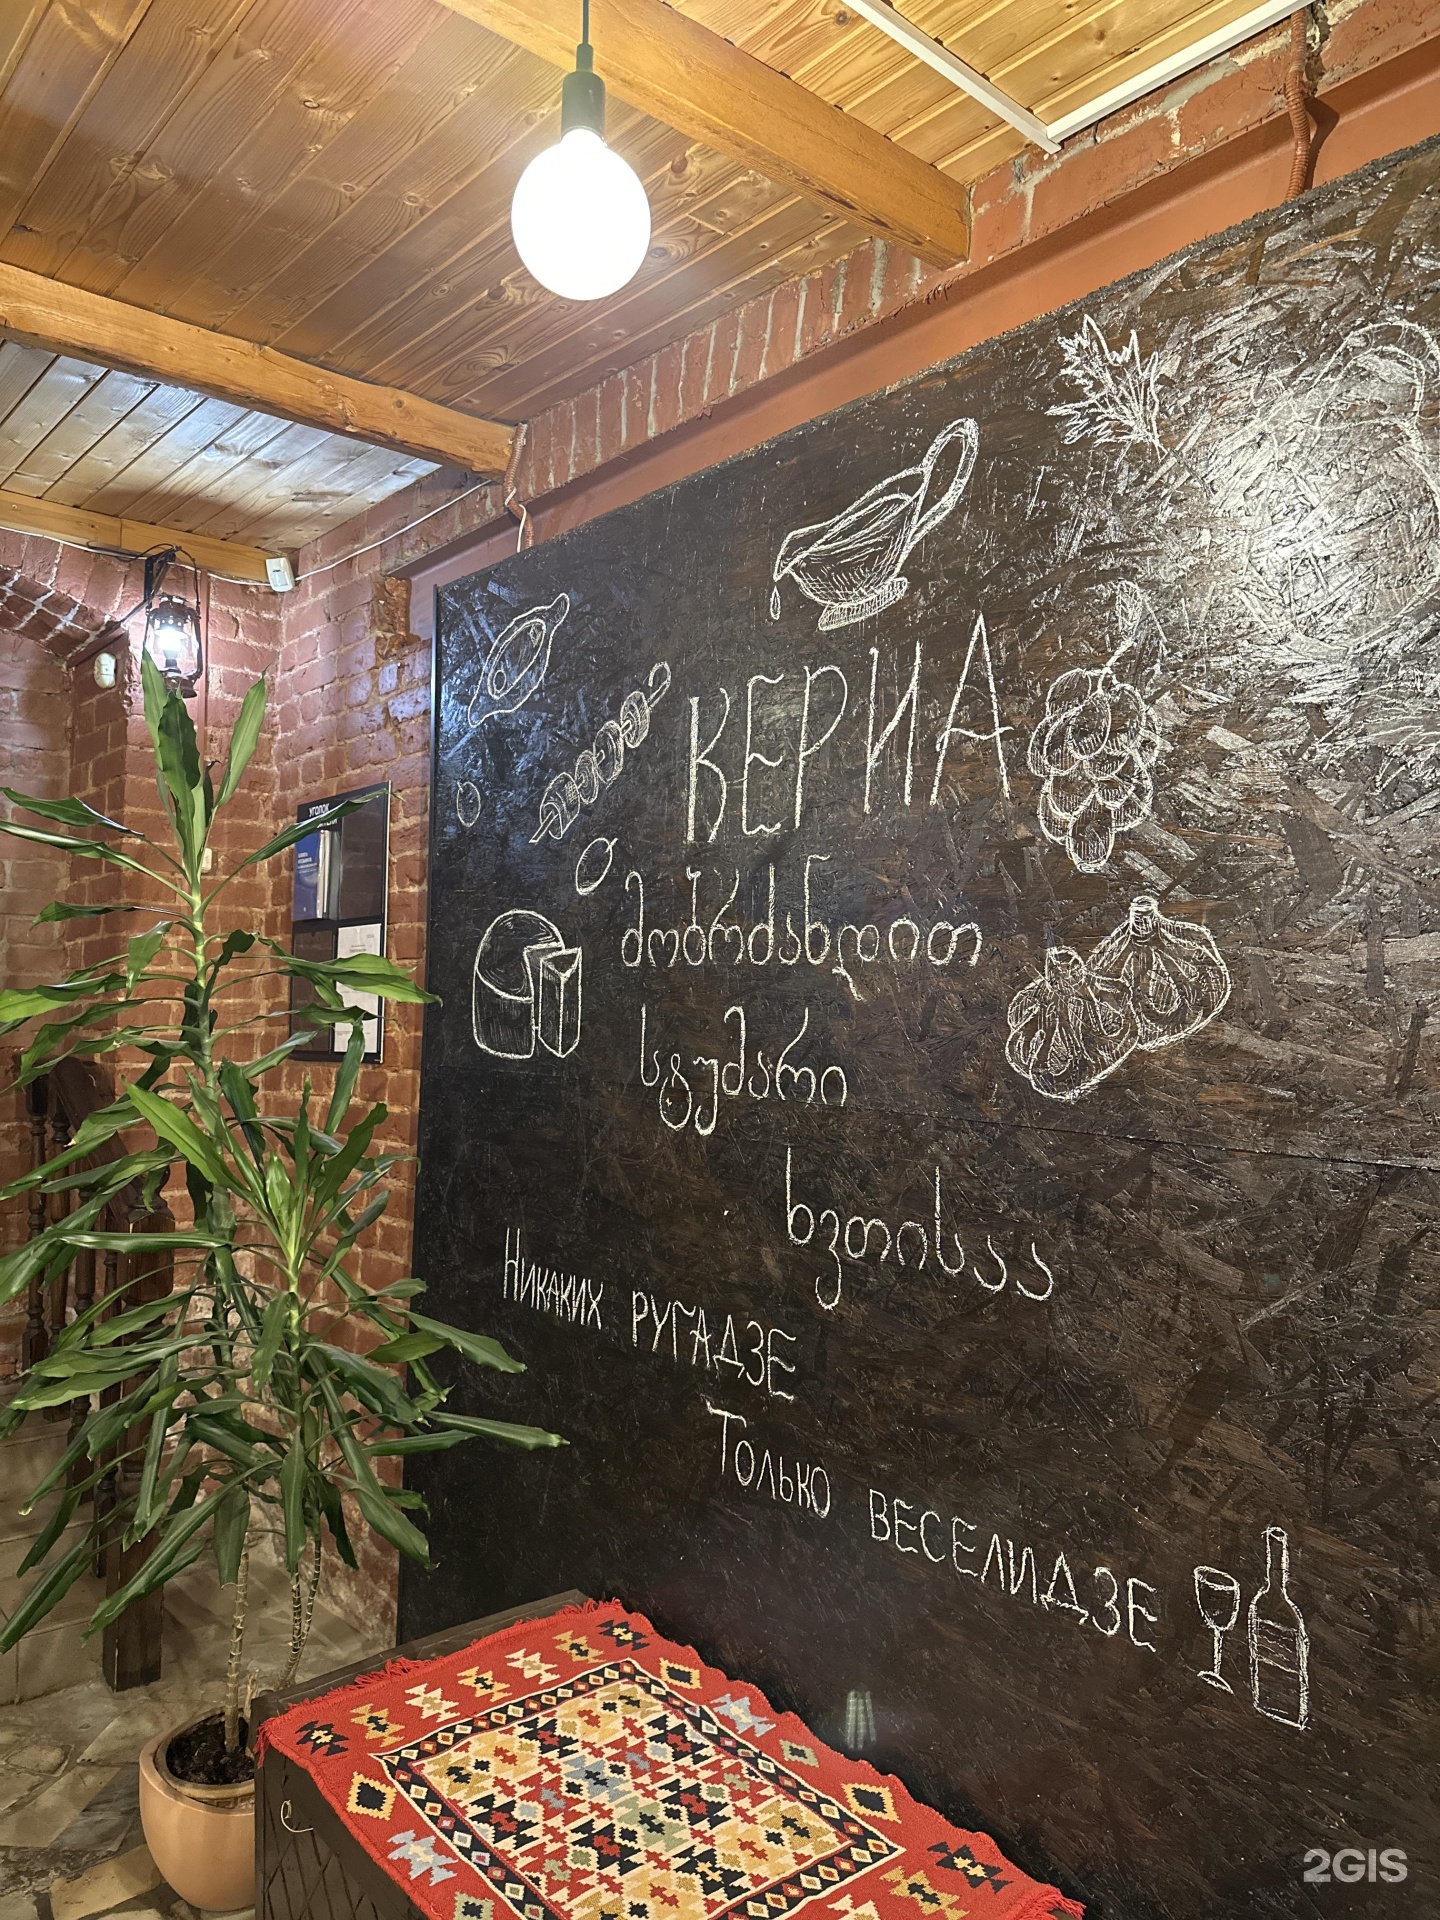 КЕРИА
მობრძანდით
სტუმარი
ხვთისაა
Никаких ругадзе
Только веселидзе
уголок
2GIS